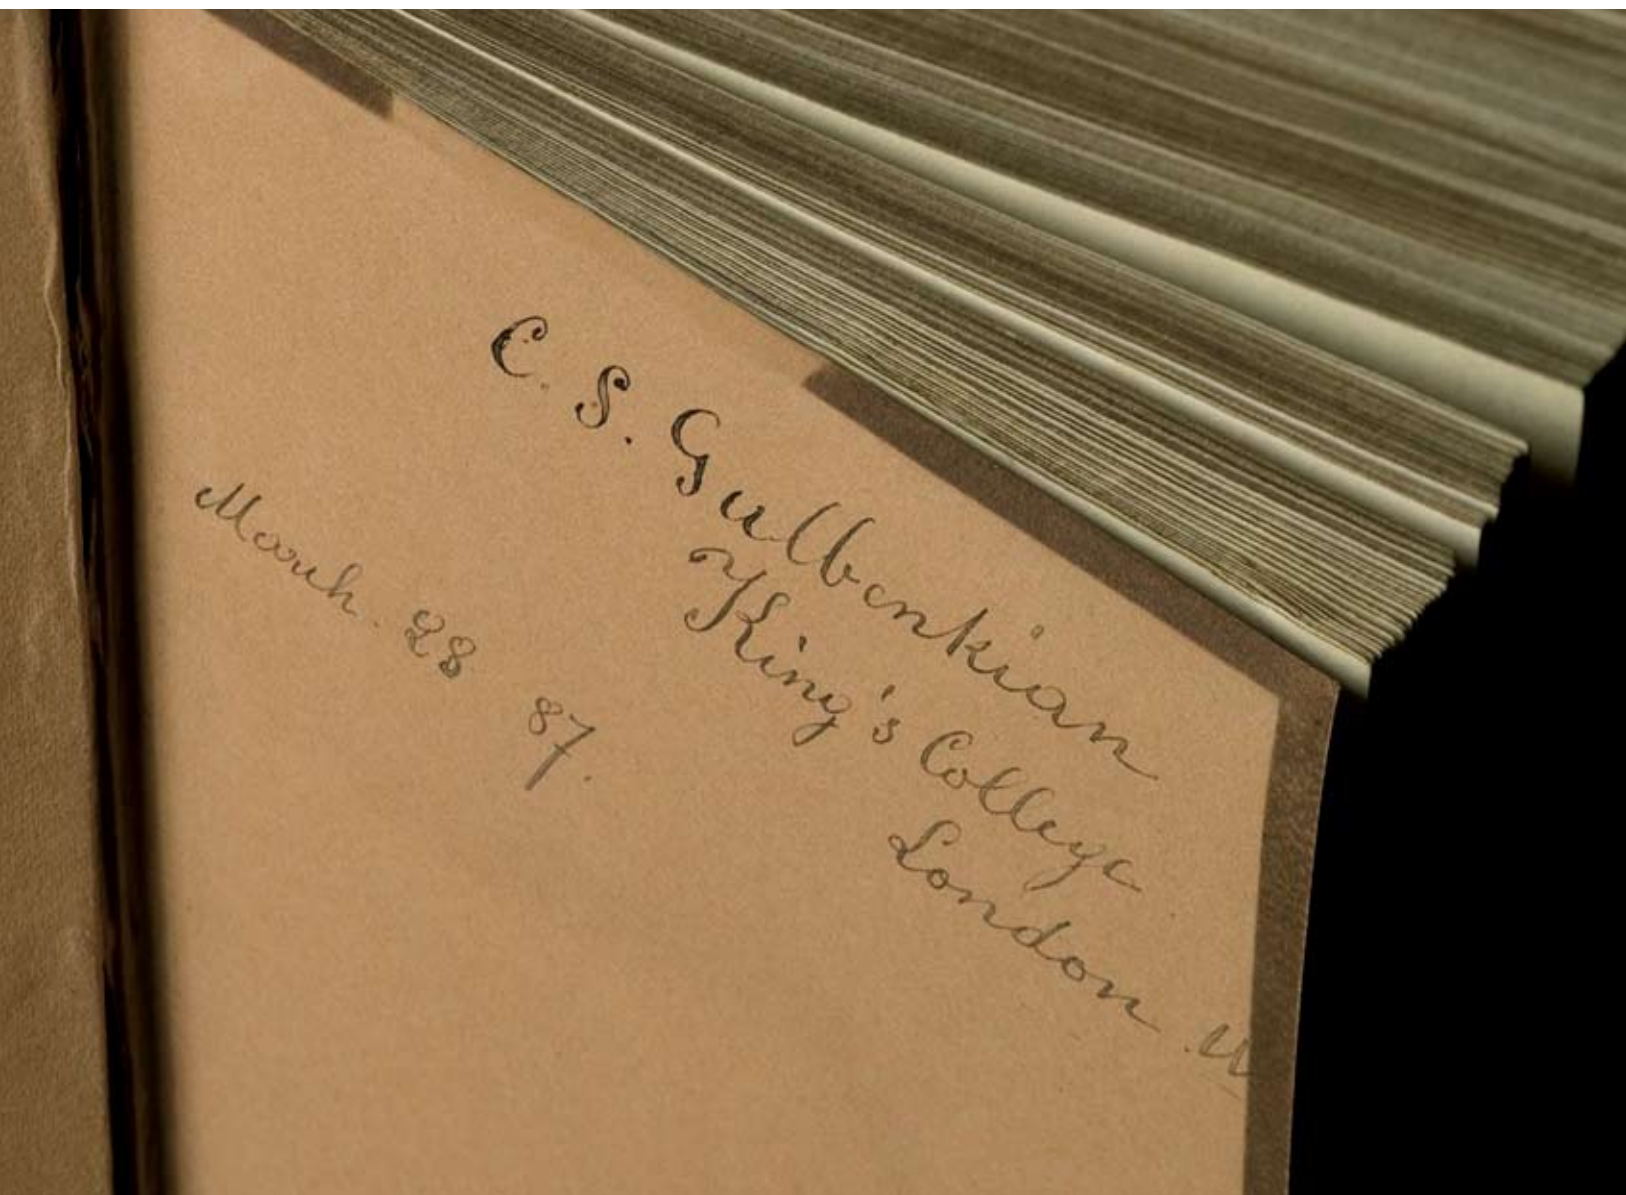 C. S. Gulbenkian
King's College
London
March. 28 87.